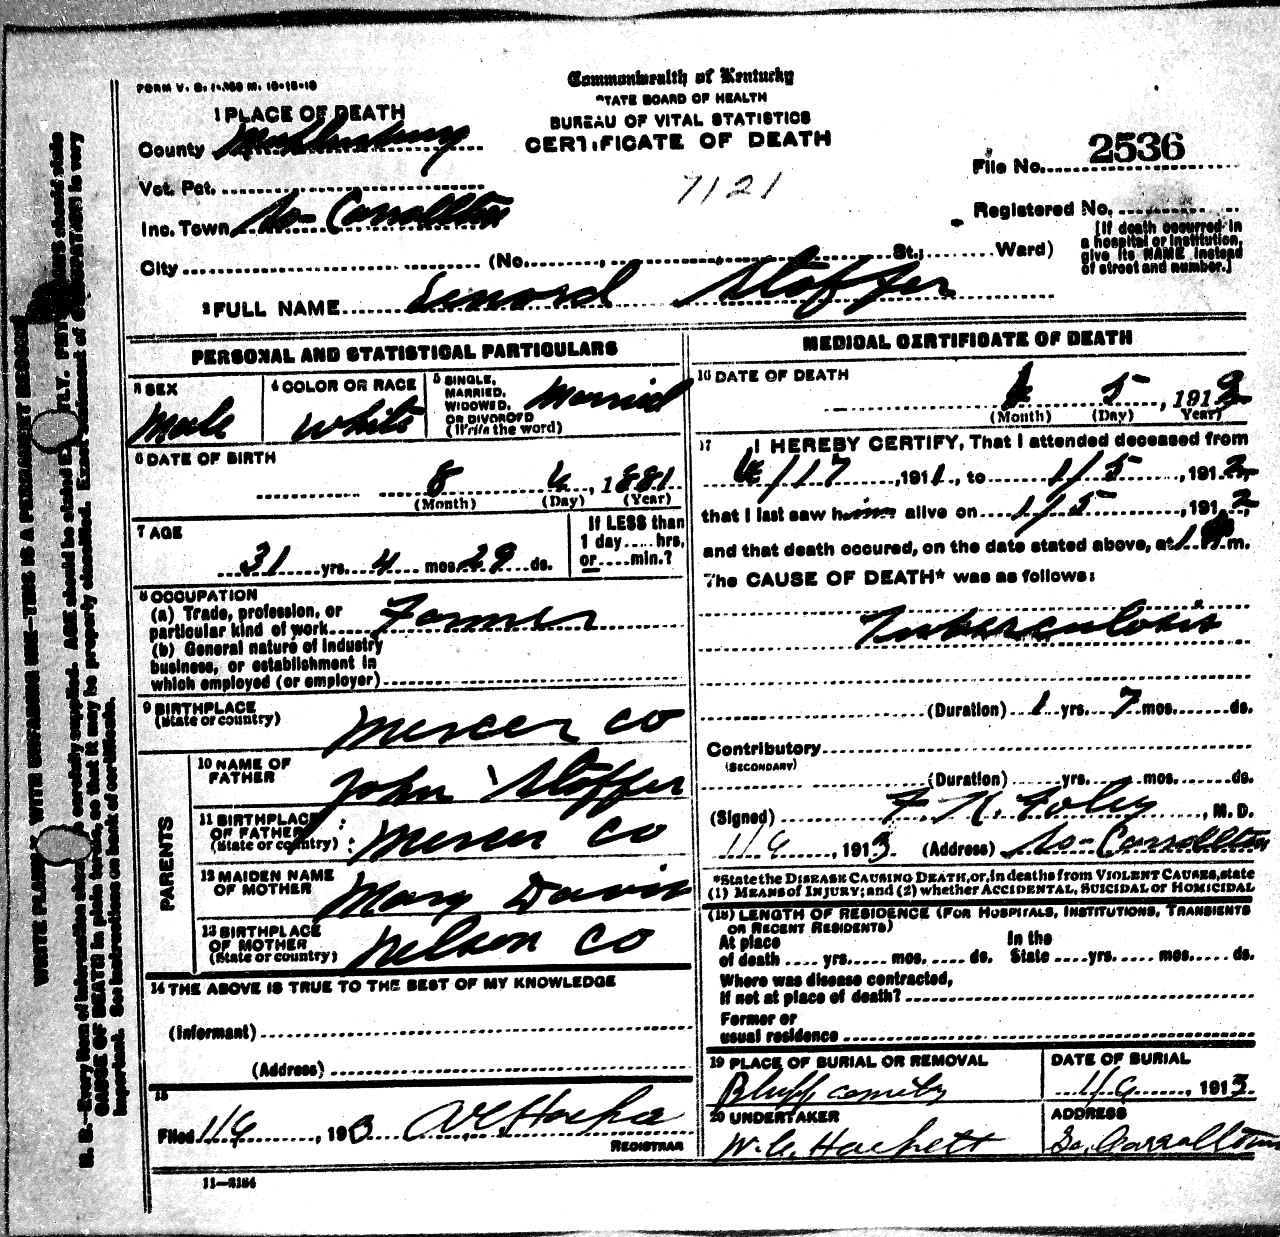 FORM V. S. 1-.160 M. 10-18-10
Commonwealth of Kentucky
STATE BOARD OF HEALTH
BUREAU OF VITAL STATISTICS
CERTIFICATE OF DEATH
1 PLACE OF DEATH
County Muhlenburg
Vot. Pct.
Inc. Town So- Carrollton
City (No. , , St.; Ward)
7121
File No. 2536
Registered No.
[If death occurred in
a hospital or institution,
give its NAME instead
of street and number.]
2 FULL NAME Lenord Stoffer
PERSONAL AND STATISTICAL PARTICULARS
3 SEX
Male
4 COLOR OR RACE
White
5 SINGLE,
MARRIED,
WIDOWED,
OR DIVORCED
(Write the word)
Married
6 DATE OF BIRTH
8 6, 1881
(Month) (Day) (Year)
7 AGE
31 yrs. 4 mos. 29 ds.
If LESS than
1 day.....hrs,
or.....min.?
8 OCCUPATION
(a) Trade, profession, or
particular kind of work Farmer
(b) General nature of industry
business, or establishment in
which employed (or employer)
9 BIRTHPLACE
(State or country)
Mercer Co
PARENTS
10 NAME OF
FATHER
John Stoffer
11 BIRTHPLACE
OF FATHER
(State or country)
Mercer Co
12 MAIDEN NAME
OF MOTHER
Mary Davis
13 BIRTHPLACE
OF MOTHER
(State or country)
Nelson Co
14 THE ABOVE IS TRUE TO THE BEST OF MY KNOWLEDGE
(Informant)
(Address)
15
Filed 1/6, 1913
REGISTRAR
11-2184
MEDICAL CERTIFICATE OF DEATH
16 DATE OF DEATH
5, 1913
(Month) (Day) Year)
17 I HEREBY CERTIFY, That I attended deceased from
/17, 1911, to 1/5, 1912,
that I last saw him alive on 1/5, 1912,
and that death occured, on the date stated above, at 1 m.
The CAUSE OF DEATH* was as follows:
Tuberculosis
(Duration) 1 yrs. 7 mos. ds.
Contributory
(SECONDARY)
(Duration) yrs. mos. ds.
(Signed) F. K. Foley, M. D.
1/6, 1913 (Address) So- Carrollton
*State the DISEASE CAUSING DEATH, or, in deaths from VIOLENT CAUSES, state
(1) MEANS of INJURY; and (2) whether ACCIDENTAL, SUICIDAL or HOMICIDAL
(18) LENGTH OF RESIDENCE (FOR HOSPITALS, INSTITUTIONS, TRANSIENTS
OR RECENT RESIDENTS)
At place
of death yrs. mos. ds.
In the
State yrs. mos. ds.
Where was disease contracted,
if not at place of death?
Former or
usual residence
19 PLACE OF BURIAL OR REMOVAL
Bluff
DATE OF BURIAL
1/6, 1913
20 UNDERTAKER
W. C. Hackett
ADDRESS
So. Carrollton
N. B.—Every item of information should be carefully supplied. AGE should be stated EXACTLY. PHYSICIANS should state
CAUSE OF DEATH in plain terms, so that it may be properly classified. Exact statement of OCCUPATION is very
important. See instructions on back of certificate.
WRITE PLAINLY WITH UNFADING INK—THIS IS A PERMANENT RECORD